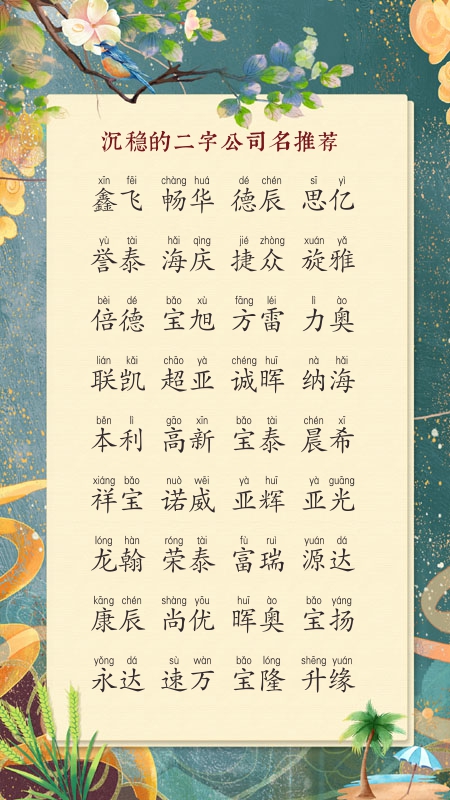 沉稳的二字公司名推荐
xīn fēi chàng huá dé chén sī yì
鑫飞 畅华 德辰 思亿
yù tài hǎi qìng jié zhòng xuán yǎ
誉泰 海庆 捷众 旋雅
bèi dé bǎo xù fāng léi lì ào
倍德 宝旭 方雷 力奥
lián kǎi chāo yà chéng huī nà hǎi
联凯 超亚 诚晖 纳海
běn lì gāo xīn bǎo tài chén xī
本利 高新 宝泰 晨希
xiáng bǎo nuò wēi yà huī yà guāng
祥宝 诺威 亚辉 亚光
lóng hàn róng tài fù ruì yuán dá
龙翰 荣泰 富瑞 源达
kāng chén shàng yōu huī ào bǎo yáng
康辰 尚优 晖奥 宝扬
yǒng dá sù wàn bǎo lóng shēng yuán
永达 速万 宝隆 升缘